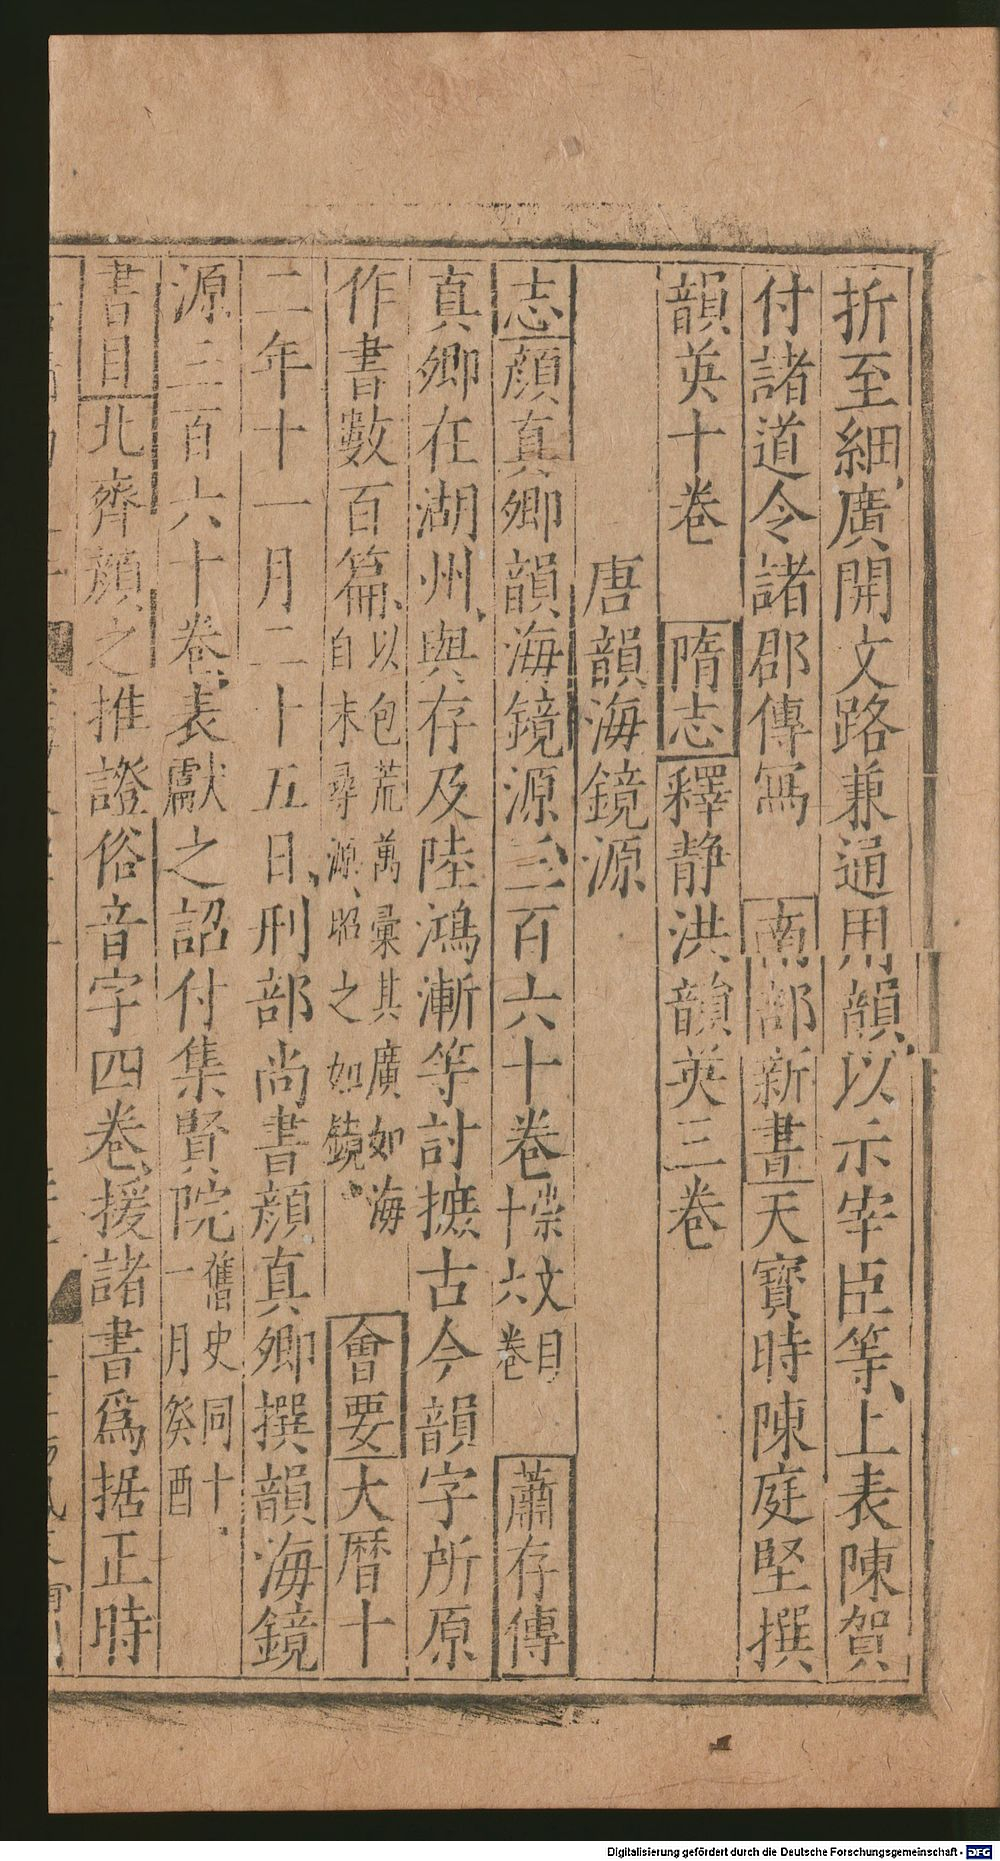 折至細廣開文路兼通用韻以示宰臣等上表陳賀
付諸道令諸郡傳寫　南部新書天寶時陳庭堅撰
韻英十卷　隋志釋静洪韻英三卷
唐韻海鏡源
志顔真卿韻海鏡源三百六十卷崇文目十六卷　蕭存傳
真卿在湖州與存及陸鴻漸等討摭古今韻字所原
作書數百篇以包荒萬彙其廣如海自末尋源照之如鏡　會要大曆十
二年十一月二十五日刑部尚書顔真卿撰韻海鏡
源三百六十卷表獻之詔付集賢院舊史同十一月癸酉
書目北齊顔之推證俗音字四卷援諸書爲据正時
Digitalisierung gefördert durch die Deutsche Forschungsgemeinschaft - DFG